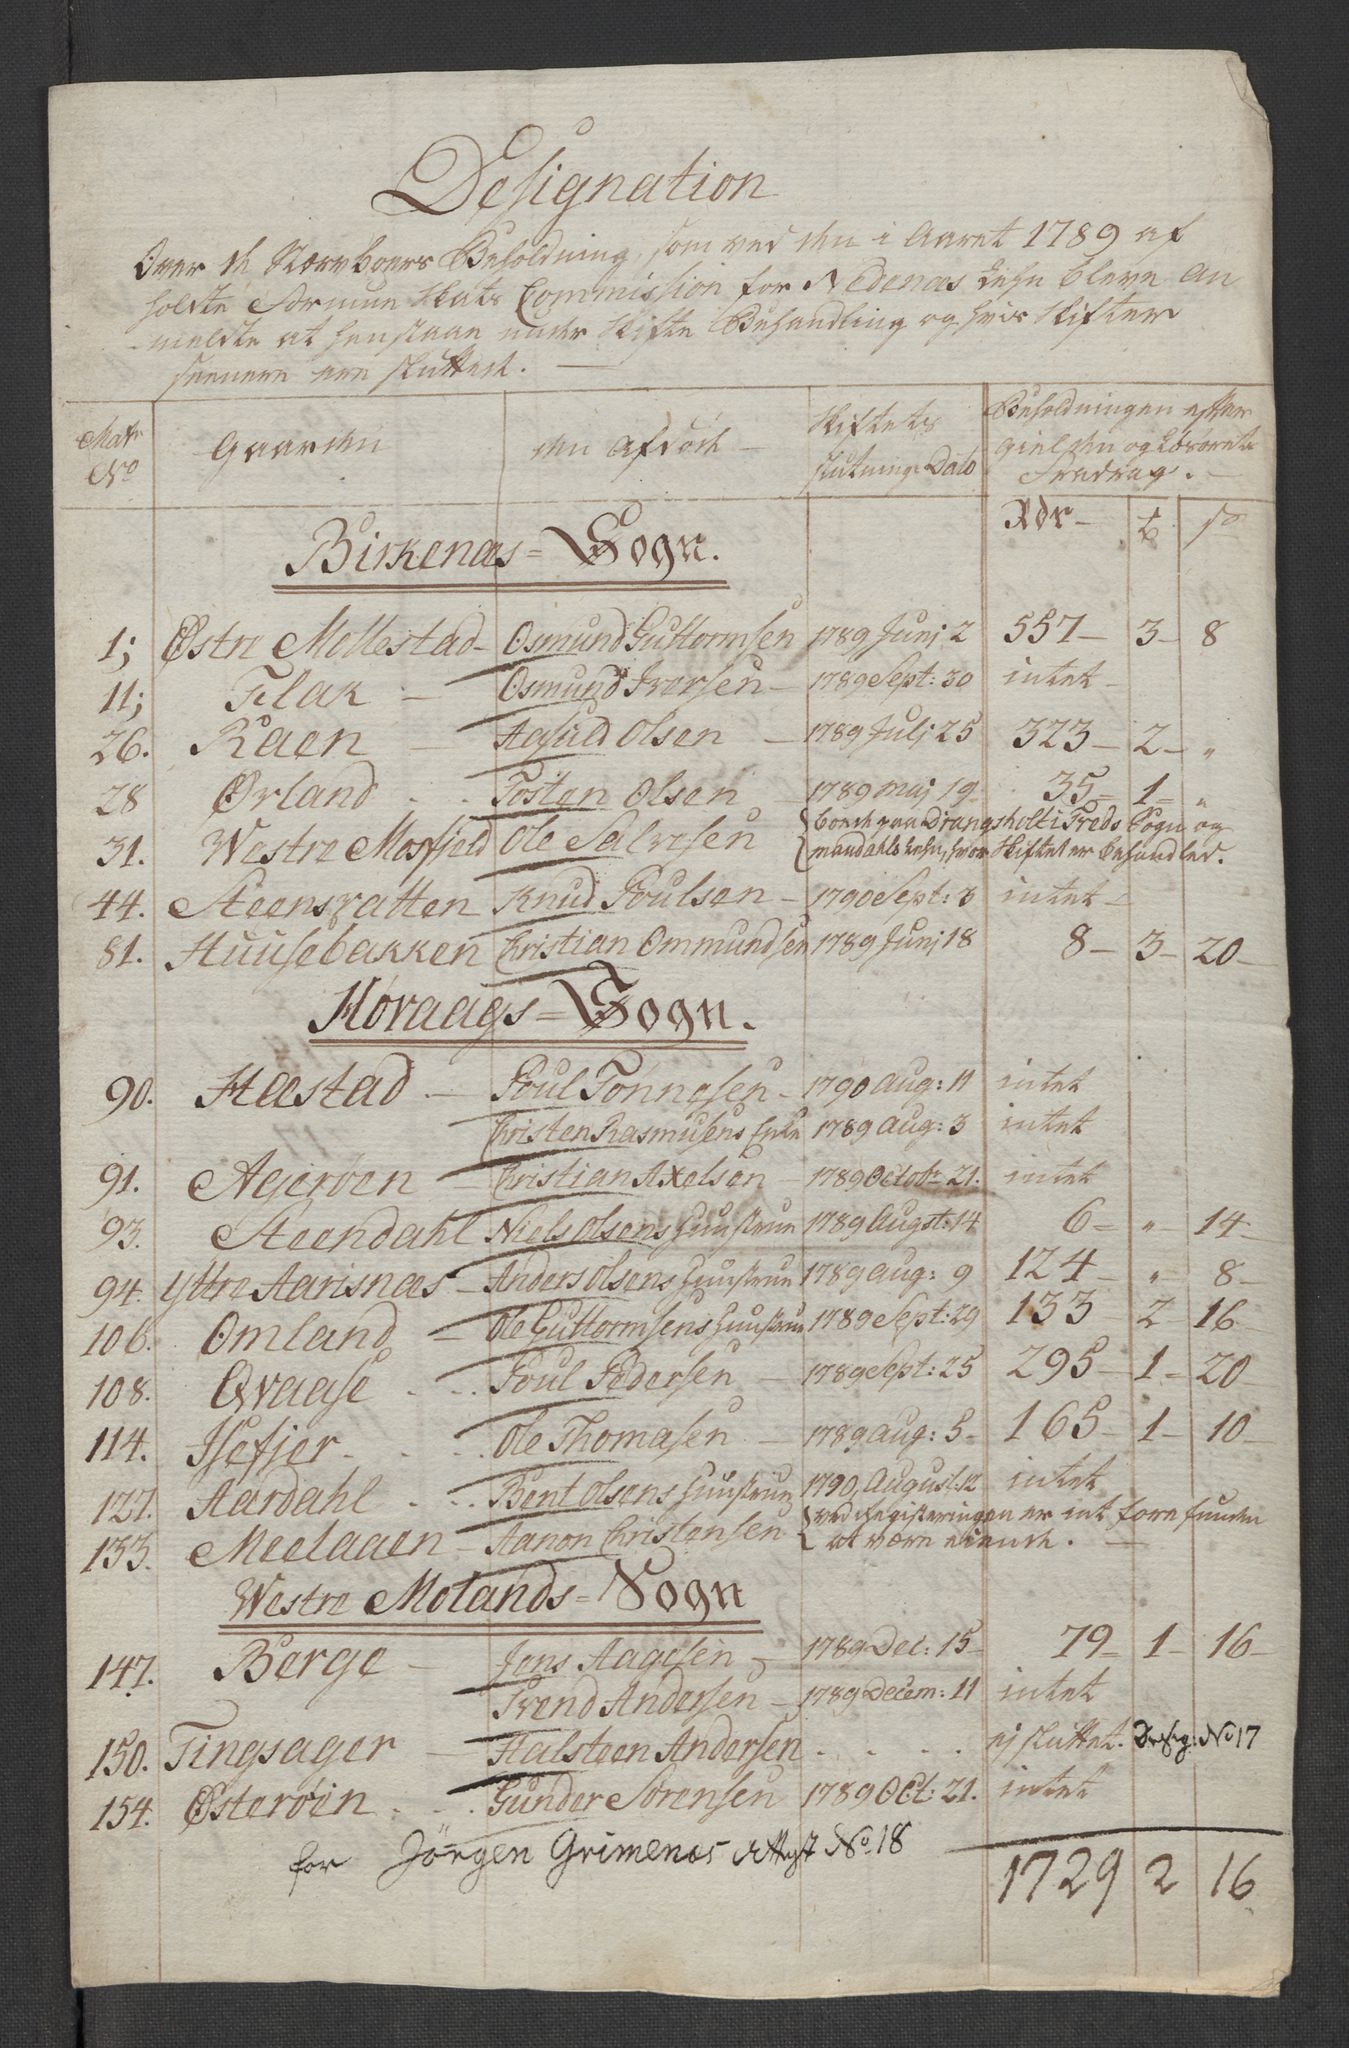 Designation
Over de Stervboers Beholdning, som ved den i Aaret 1789 af
holdte Formue Skats Commission for Nedenæs Lehn bleve an
meldte at henstaae under Skifte Behandling og hvis Skifter
seenere ere sluttede. —
Matr No | Gaarden | den Afdöde — | Skiftets slutnings Dato | Beholdningen efter Gielden og Lösörets Fradrag. —
Rdr — | ƀ | so
Birkenæs = Sogn.
1; Østre Mollestad — Osmund Guttormsen 1789 Junj 2 557 — 3 — 8
11; Flak — Osmund Iversen — 1789 Sept: 30 intet —
26. Raen — Aasuld Olsen — 1789 Julj 25 323 — 2 — "
28 Ørland . . Tosten Olsen — 1789 Maj 19 — 35 — 1 — "
31. Westre Mosfjeld Ole Salvesen { boede paa Drangsholt i Treds Sogn og
Mandahls Lehn, hvor Skiftet er behandled.
44. Steensvatten Knud Poulsen — 1790 Sept: 3 intet —
81. Huusebakken Christian Ommundsen 1789 Junj 18 8 — 3 — 20 —
Høvaags = Sogn.
90. Hæstad — Poul Tønnesen — 1790 Aug: 11 intet
Christen Rasmusens Enke 1789 Aug: 3 intet
91. Agerøen — Christian Axelsen — 1789 Octobr 21. intet
93. Steendahl Niels Olsens Huustrue 1789 Augst: 14 6 — " 14 —
94. Yttre Aarisnæs — Anders Olsens Huustrue 1789 Aug: 9 124 — " 8 —
106. Omland — Ole Guttormsens Huustrue 1789 Sept: 29 133 — 2 — 16 —
108. Qvaase . . Poul Pedersen — 1789 Sept: 25 295 — 1 — 20 —
114. Isefjer — . . Ole Thomasen — 1789 Aug: 5 — 165 — 1 — 10 —
127. Aardahl . . Bent Olsens Huustrue 1790, August 12 intet
133. Meelaaen — Aanon Christensen { ved Registeringen er intet forefunden
at være eiende. —
Westre Molands = Sogn
147. Berge — Jens Aagesen — 1789 Dec: 15 — 79 — 1 — 16 —
Trend Andersen — 1789 Decem: 11 intet
150. Tingsager — Halsteen Andersen . . . . ej sluttet. Desig: No 17
154. Østerøen . . Gunder Sørensen 1789 Oct: 21. intet
for Jörgen Grimenæs Attest No 18
1729 2 16